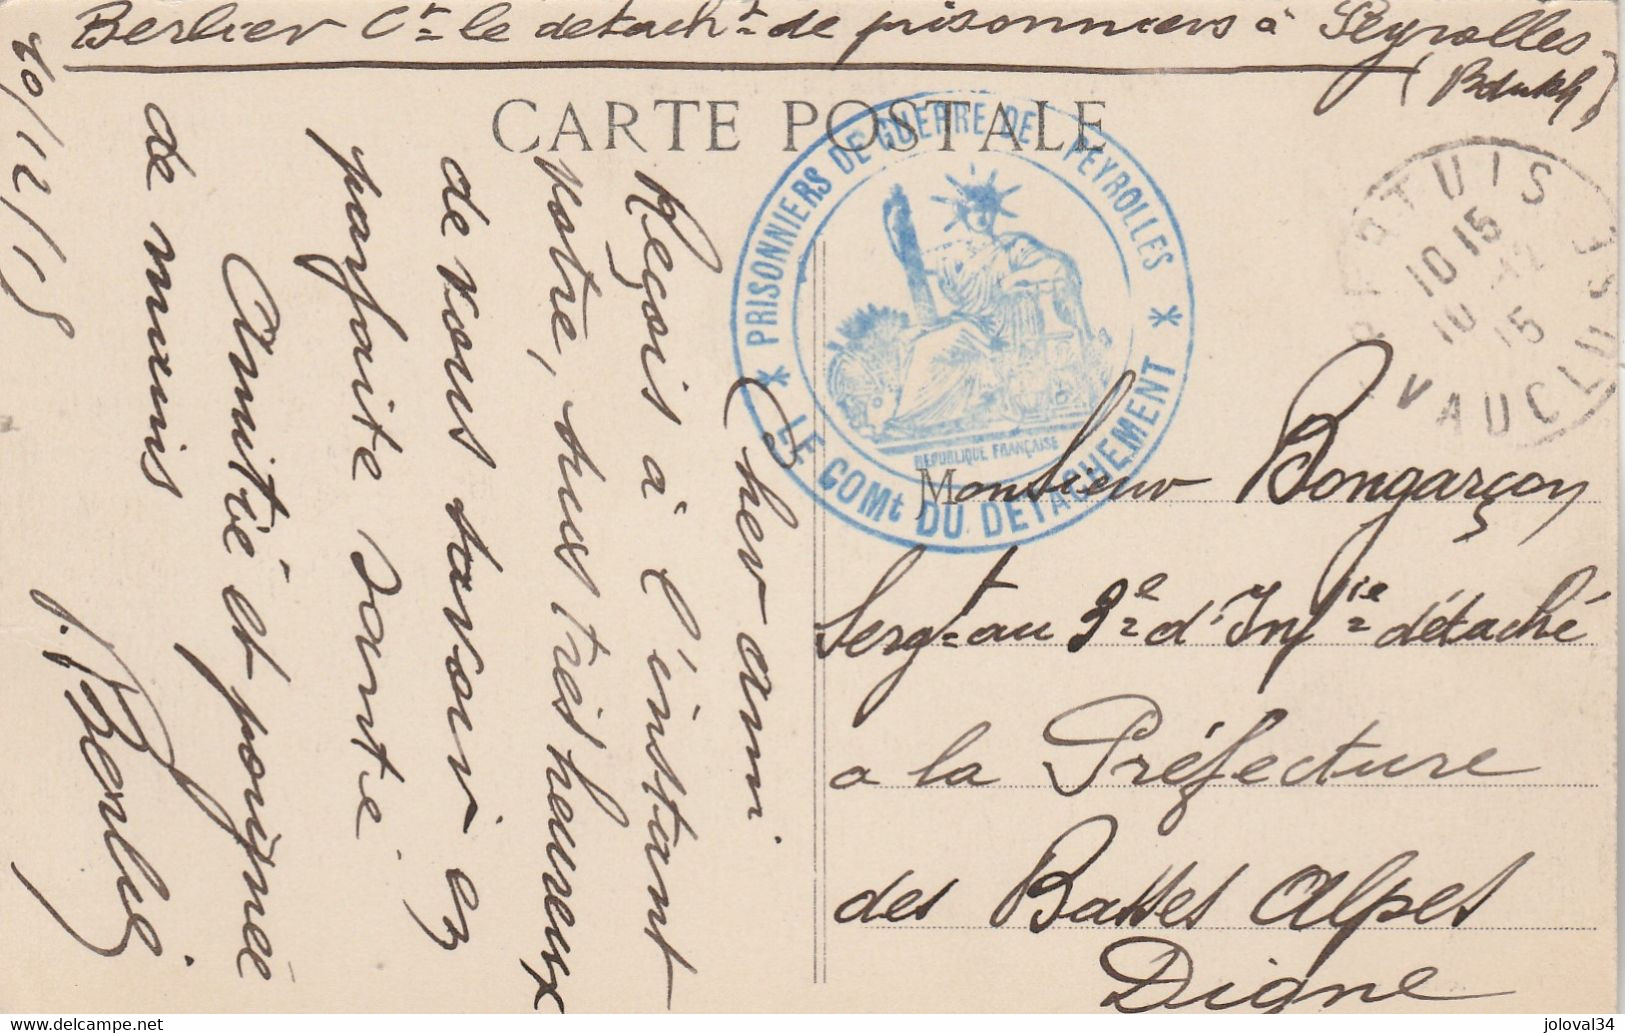 Berlier Ct le détacht de prisonniers à Peyrolles
(BduRh)
CARTE POSTALE
PRISONNIERS DE GUERRE DE PEYROLLES
LE COMt DU DÉTACHEMENT
REPUBLIQUE FRANÇAISE
PERTUIS
10 15
10 12
15
VAUCLUSE
Monsieur Bongarçon
Sergt au 3e d'Infie détaché
a la Préfecture
des Basses Alpes
Digne
10/12/15
Cher ami
Reçois à l'instant
votre, suis très heureux
de vous savoir en
parfaite santé
Amitié et poignée
de mains
J. Berlier
joloval34